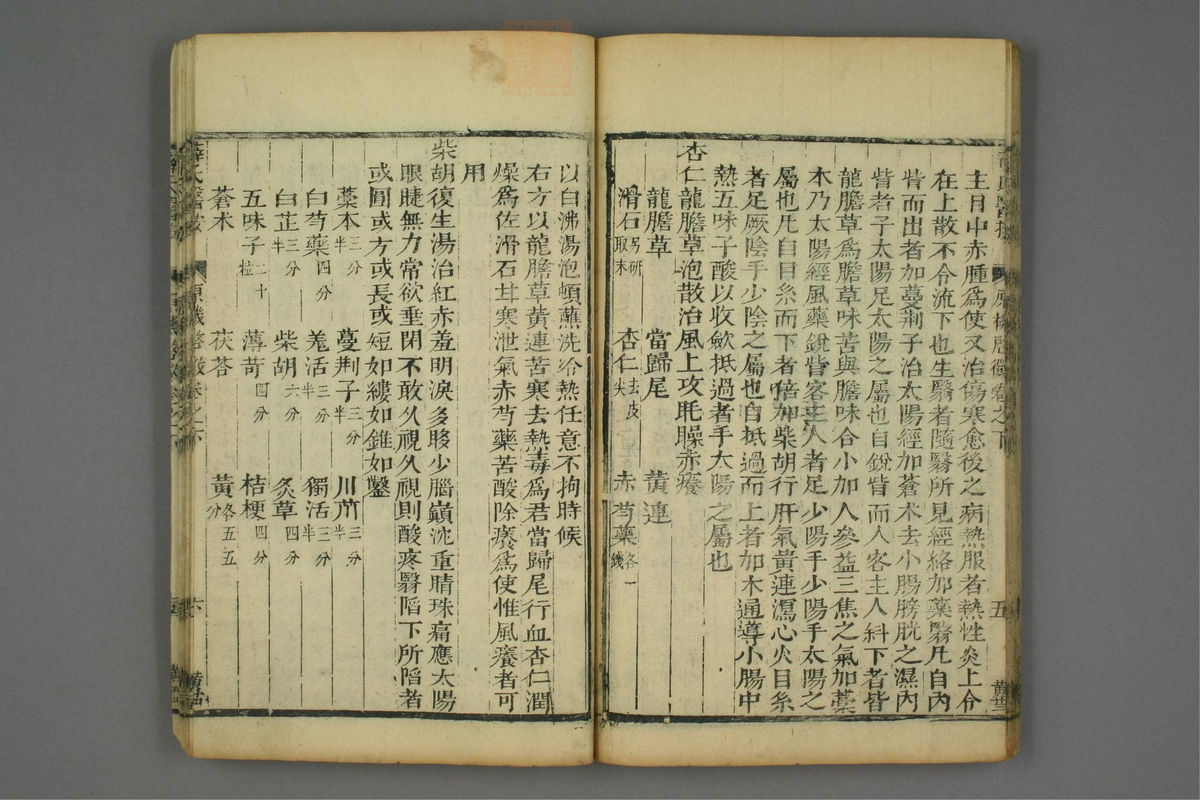 主目中赤腫爲使又治傷寒愈後之病熱服者熱性炎上令
在上散不令流下也生翳者隨翳所見經絡加藥翳凡自內
眥而出者加蔓荆子治太陽經加蒼术去小腸膀胱之濕內
眥者手太陽足太陽之屬也自銳眥而入客主人斜下者皆
龍膽草爲膽草味苦與膽味合小加人參益三焦之氣加藁
木乃太陽經風藥銳眥客主人者足少陽手少陽手太陽之
屬也凡自目糸而下者倍加柴胡行肝氣黃連瀉心火目糸
者足厥陰手少陰之屬也自抵過而上者加木通導小腸中
熱五味子酸以收斂抵過者手太陽之屬也
杏仁龍膽草泡散治風上攻眊矂赤癢
龍膽草 當歸尾 黃連
滑石另研取末 杏仁去皮尖 赤芍藥各一錢
以白沸湯泡頓蘸洗冷熱任意不拘時候
右方以龍膽草黃連苦寒去熱毒爲君當歸尾行血杏仁潤
燥爲佐滑石甘寒泄氣赤芍藥苦酸除癢爲使惟風癢者可
用
柴胡復生湯治紅赤羞明淚多眵少腦巔沈重睛珠痛應太陽
眼睫無力常欲垂閉不敢久視久視則酸疼翳陷下所陷者
或圓或方或長或短如縷如錐如鑿
藁本三分半 蔓荆子三分半 川芎三分半
白芍藥四分 羌活三分半 獨活三分半
白芷三分 柴胡六分 炙草四分
五味子二十粒 薄荷四分 桔梗四分
蒼术 茯苓 黃各五分
薛氏醫按 原機啓微卷之下 六